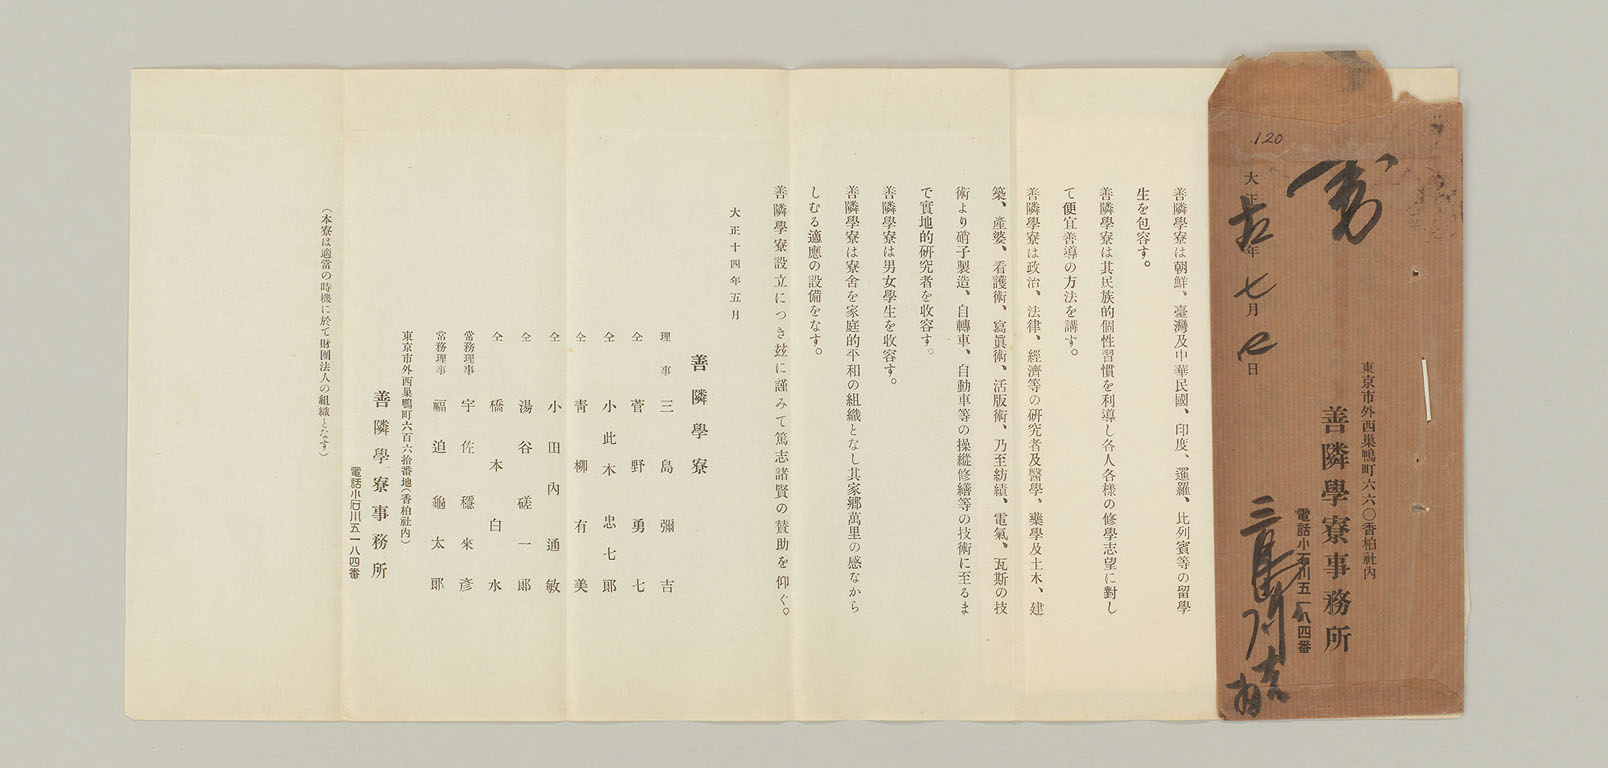 120
大正五年七月七日
東京市外西巢鴨町六六〇香柏社內
善隣學寮事務所
電話小石川五一八四番
善隣學寮は朝鮮、臺灣及中華民國、印度、暹羅、比列賓等の留學
生を包容す。
善隣學寮は其民族的個性習慣を利導し各人各樣の修學志望に對し
て便宜善導の方法を講す。
善隣學寮は政治、法律、經濟等の硏究者及醫學、藥學及土木、建
築、產婆、看護術、寫眞術、活版術、乃至紡績、電氣、瓦斯の技
術より硝子製造、自轉車、自動車等の操縱修繕等の技術に至るま
で實地的硏究者を收容す。
善隣學寮は男女學生を收容す。
善隣學寮は寮舍を家庭的平和の組織となし其家鄕萬里の感なから
しむる適應の設備をなす。
善隣學寮設立につき玆に謹みて篤志諸賢の贊助を仰ぐ。
大正十四年五月
善隣學寮
理事 三島彌吉
仝 菅野勇七
仝 小此木忠七郞
仝 靑柳有美
仝 小田內通敏
仝 湯谷磋一郞
仝 橋本白水
常務理事 宇佐穩來彥
常務理事 福迫龜太郞
東京市外西巢鴨町六百六拾番地(香柏社內)
善隣學寮事務所
電話小石川五一八四番
(本寮は適當の時機に於て財團法人の組織となす)